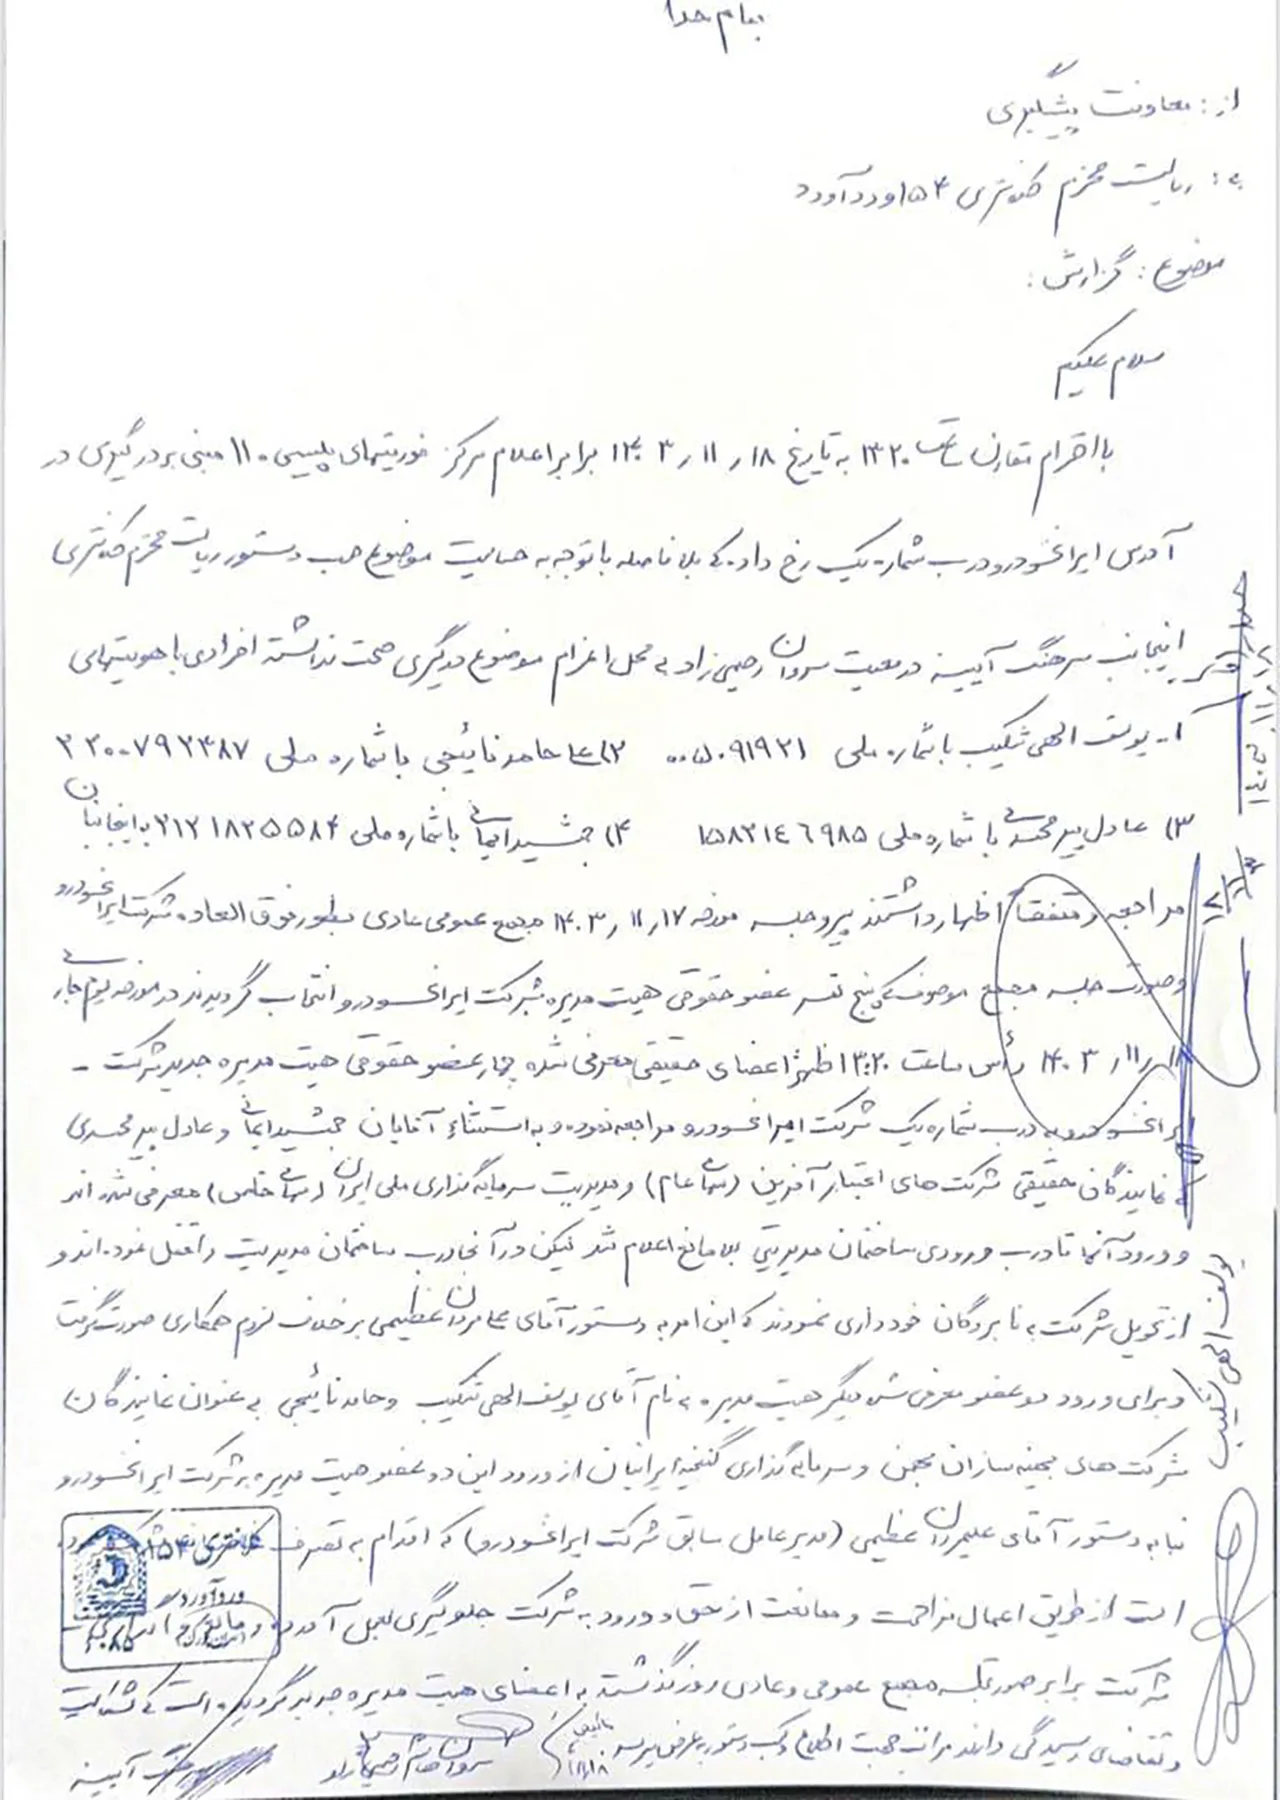 بنام خدا
از: معاونت پیشگیری
به: ریاست محترم کلانتری ۱۵۴ وردآورد
موضوع: گزارش:
سلام علیکم
با احترام مقارن ساعت ۱۳۲۰ به تاریخ ۱۸ ر ۱۱ ر ۱۴۰۳ برابر اعلام مرکز فوریتهای پلیسی ۱۱۰ مبنی بر درگیری در
آدرس ایرانخودرو درب شماره یک رخ داده که بلافاصله با توجه به حساسیت موضوع حسب دستور ریاست محترم کلانتری
اینجانب سرهنگ آیینه در معیت ستوان رحیمی زاد به محل اعزام موضوع درگیری صحت نداشته افرادی با هویتهای
۱ـ یوسف الهی شکیب با شماره ملی ۰۰۵۰۹۱۹۲۱ ۲) حامد نائیجی با شماره ملی ۲۲۰۰۷۹۲۳۸۷
۳) عادل پیرمحمدی با شماره ملی ۱۵۸۲۱۴۶۹۸۵ ۴) جمشید ایمانی با شماره ملی ۲۱۲۱۸۲۵۵۸۴ به اینجانبان
مراجعه و متفقاً اظهار داشتند پیرو جلسه مورخه ۱۷ ر ۱۱ ر ۱۴۰۳ مجمع عمومی عادی بطور فوق العاده شرکت ایرانخودرو
و صورت جلسه مجمع موصوف که پنج نفر عضو حقوقی هیت مدیره شرکت ایرانخودرو انتخاب گردیدند در مورخه یوم جاری
۱۸ ر ۱۱ ر ۱۴۰۳ رأس ساعت ۱۳:۲۰ ظهر اعضای حقیقی معرفی شده چهار عضو حقوقی هیت مدیره جدید شرکت -
ایرانخودرو به درب شماره یک شرکت ایرانخودرو مراجعه نموده و به استثناء آقایان جمشید ایمانی و عادل پیرمحمدی
که نمایندگان حقیقی شرکت های اعتبار آفرین (سهامی عام) و مدیریت سرمایه گذاری ملی ایران (سهامی خاص) معرفی شده اند
و ورود آنها تا درب ورودی ساختمان مدیریتی بلامانع اعلام شد لیکن در آنجا درب ساختمان مدیریت را قفل نموده اند و
از تحویل شرکت به نامبردگان خودداری نمودند که این امر به دستور آقای علیمردان عظیمی برخلاف لزوم همکاری صورت گرفت
و برای ورود دو عضو معرفی شده دیگر هیت مدیره به نام آقای یوسف الهی شکیب و حامد نائیجی به عنوان نمایندگان
شرکت های بهینه سازان بهمن و سرمایه گذاری گنجینه ایرانیان از ورود این دو عضو هیت مدیره به شرکت ایرانخودرو
بنا به دستور آقای علیمردان عظیمی (مدیرعامل سابق شرکت ایرانخودرو) که اقدام به تصرف
است از طریق اعمال مزاحمت و ممانعت از حق و ورود به شرکت جلوگیری بعمل آمده و
شرکت برابر صورتجلسه مجمع عمومی و عادی روز گذشته به اعضای هیت مدیره جدید گردیده است که شکایت
و تقاضای رسیدگی دارند مراتب جهت اطلاع و کسب دستور به عرض میرسد
سرهنگ آیینه
یوسف الهی شکیب
کلانتری ۱۵۴
وردآورد